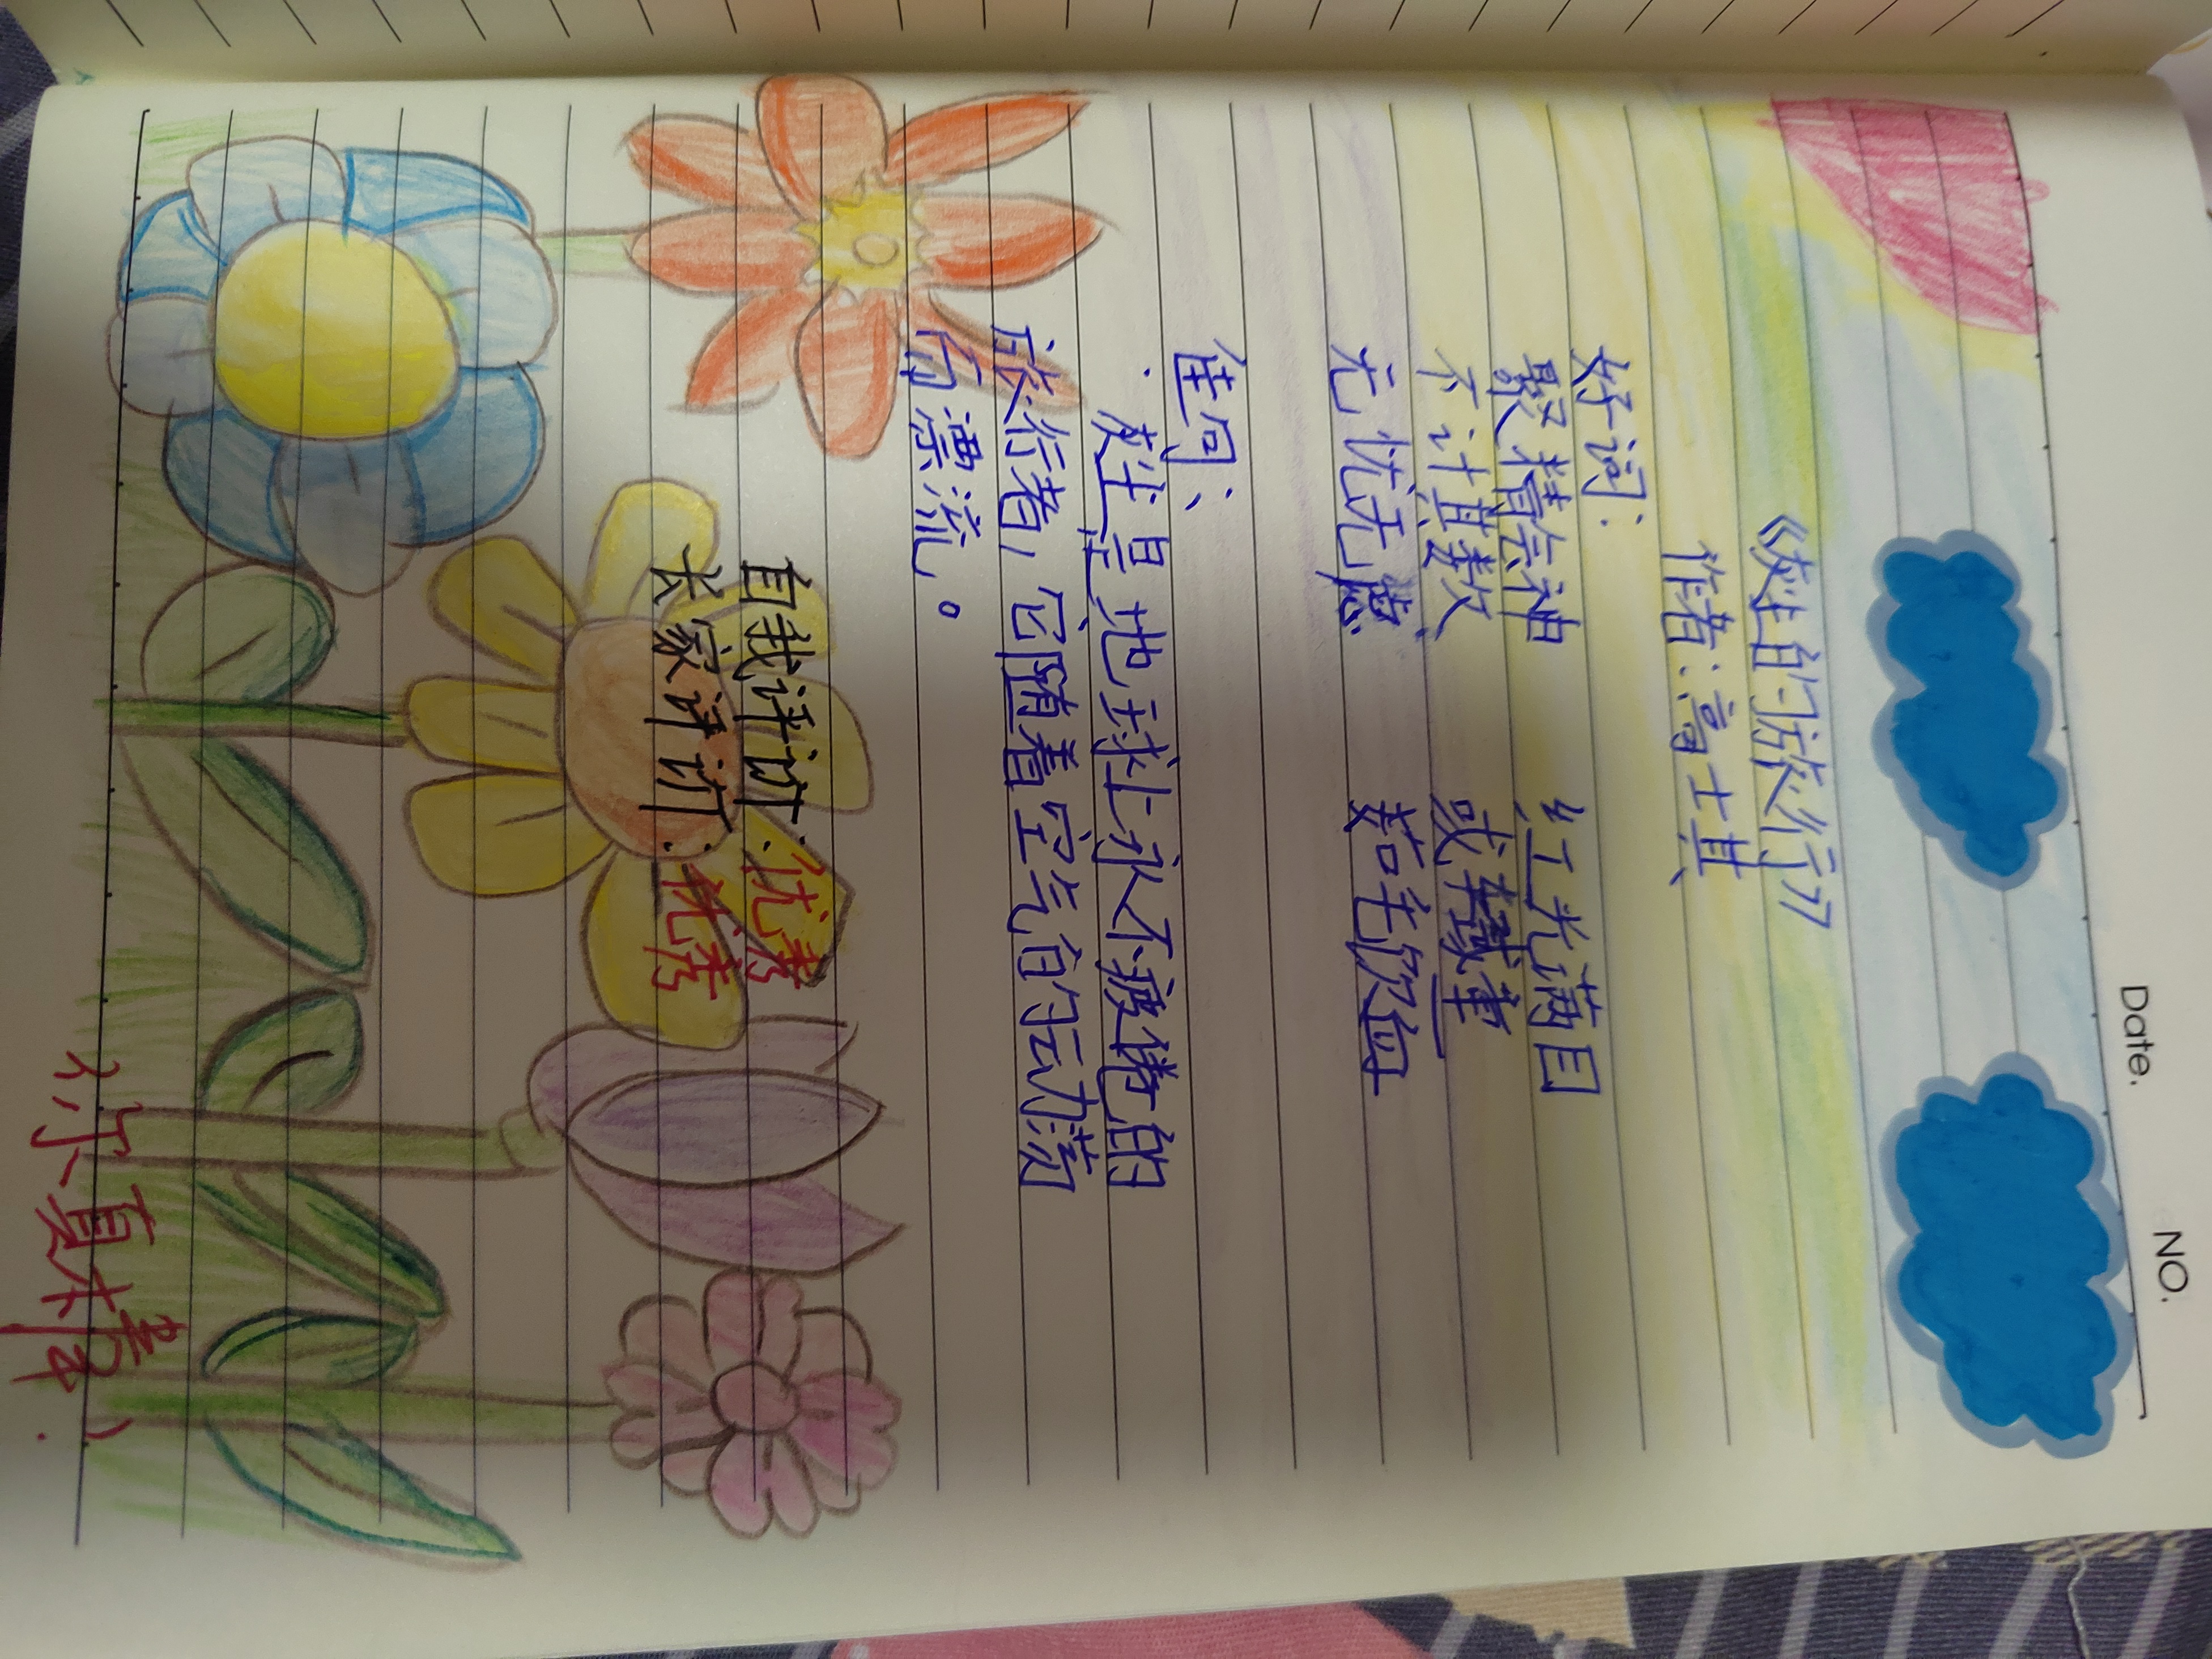 Date. NO.
《灰尘的旅行》
作者:高士其
好词:
聚精会神 红光满目
不计其数 或轻或重
无忧无虑 茹毛饮血
佳句:
灰尘是地球上永不疲倦的
旅行者,它随着空气的动荡
而漂流。
自我评价:优秀
长家评价:优秀